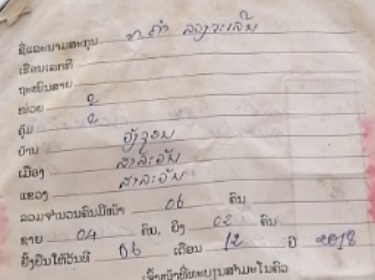 ຊື່ແລະນາມສະກຸນ ທ ຄຳ
ເຮືອນເລກທີ
ຖະໜົນສາຍ
ໜ່ວຍ 2
ຄຸ້ມ 2
ບ້ານ
ເມືອງ ສາລະວັນ
ແຂວງ ສາລະວັນ
ລວມຈຳນວນຄົນມີໜ້າ 06 ຄົນ
ຊາຍ 04 ຄົນ, ຍິງ 02 ຄົນ
ຢັ້ງຢືນໃຫ້ວັນທີ 06 ເດືອນ 12 ປີ 2018
ເຈົ້າໜ້າທີ່ທະບຽນສຳມະໂນຄົວ